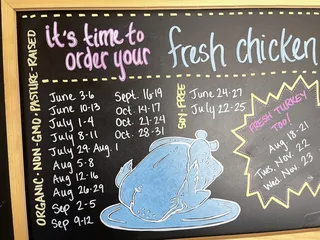 it's time to
order your
fresh chicken
ORGANIC · NON-GMO · PASTURE-RAISED
June 3-6
June 10-13
July 1-4
July 8-11
July 29-Aug. 1
Aug 5-8
Aug 12-16
Aug 26-29
Sep 2-5
Sep 9-12
Sept. 16-19
Oct. 14-17
Oct. 21-24
Oct. 28-31
SOY-FREE
June 24-27
July 22-25
FRESH TURKEY
TOO!
Aug 18-21
Tues, Nov. 22
Wed, Nov. 23